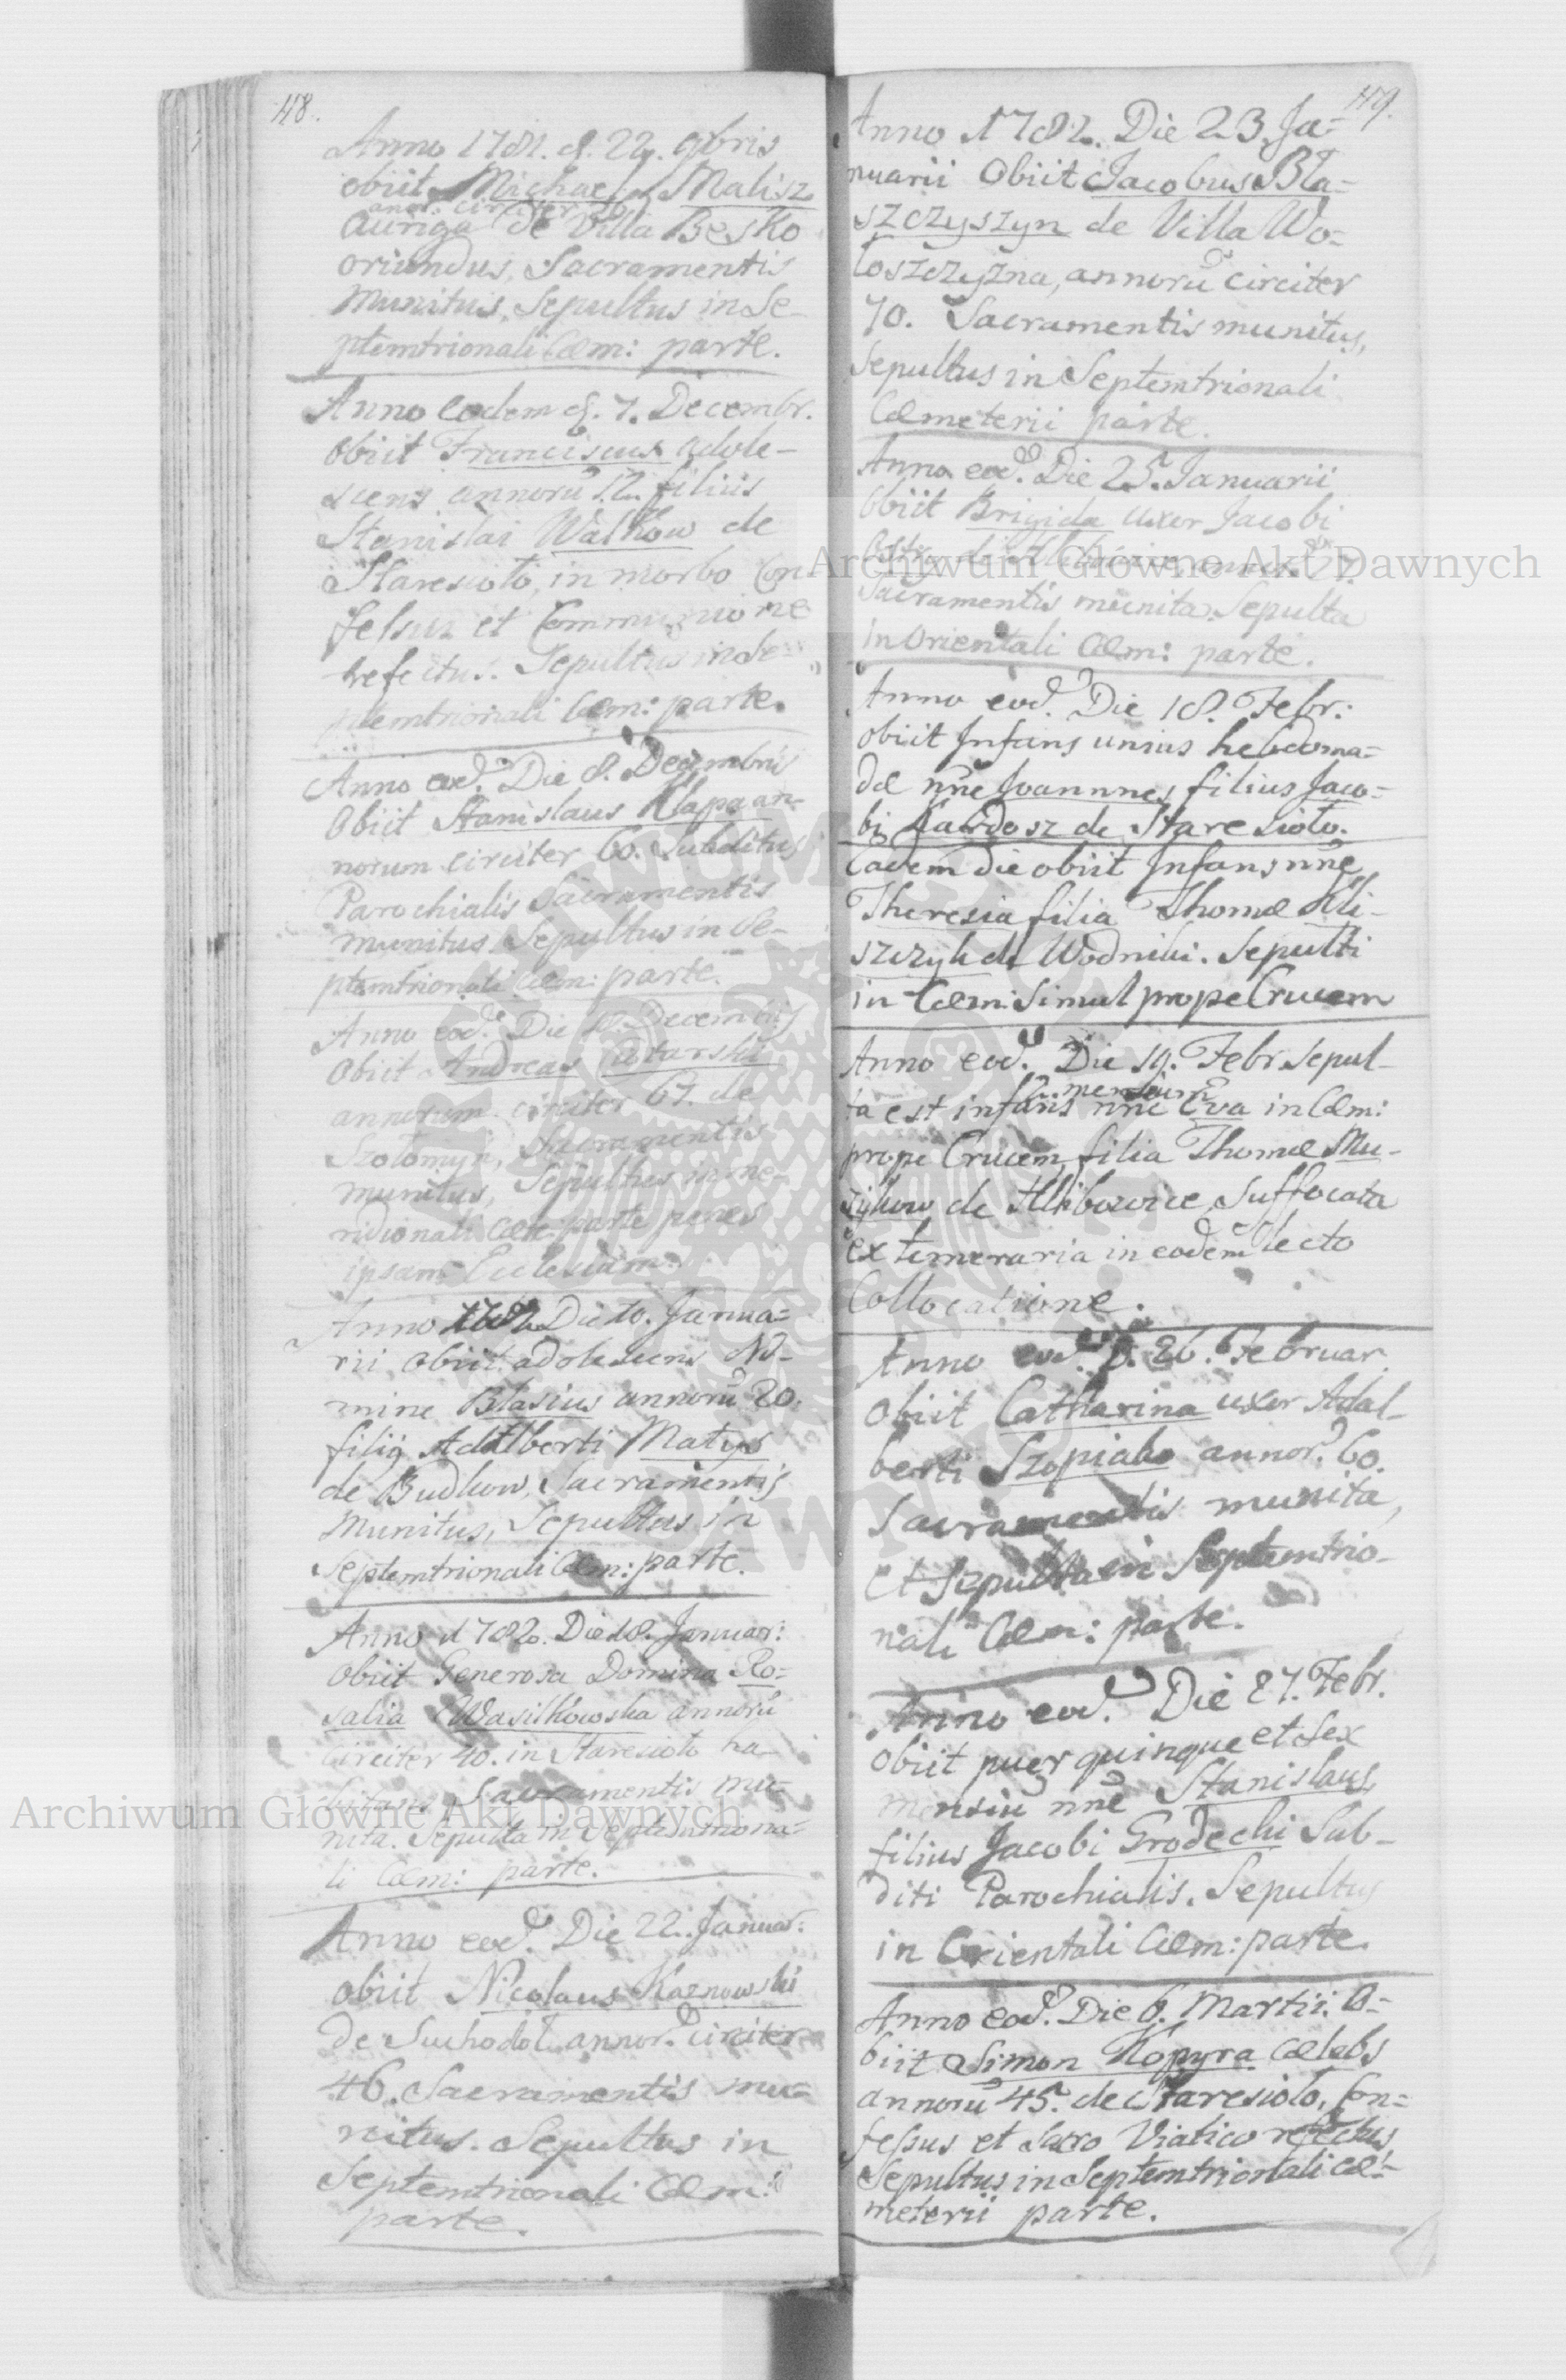 118.
Anno 1781. d. 22. 9bris
obiit Michael Malisz
annor. circiter
Auriga de Villa Besko
oriundus, Sacramentis
Munitus, Sepultus in Se-
ptemtrionali Cæm: parte.
Anno eodem d. 7. Decembr.
obiit Franciscus adole-
scens annorũ 12. filius
Stanislai Walkow de
Staresioło, in morbo Con
fessus et Communione
refectus. Sepultus in Se-
ptemtrionali Cæm: parte.
Anno eod. Die 8. Decembris
Obiit Stanislaus Klapa an-
norum circiter 60. Subditus
Parochialis Sacramentis
munitus Sepultus in Se-
ptemtrionali Cæm: parte.
Anno eod. Die Decembris
Obiit Andreas
annorum circiter 67. de
Szołomyn, Sacramentis
munitus, Sepultus in me-
ridionali Cæm: parte penes
ipsam Ecclesiam.
Anno 1782 Die 10. Janua=
rii obiit adolescens No-
mine Blasius annorũ 20.
filij Adalberti Matys
de Budkow, Sacramentis
Munitus, Sepultus in
Septemtrionali Cæm: parte.
Anno 1782. Die 18. Januar:
Obiit Generosa Domina Ro=
salia Wasilkowska annorũ
Circiter 40. in Staresioło ha-
bitans Sacramentis mu-
nita. Sepulta in Septemtriona=
li Cæm: parte.
Anno eod. Die 22. Januar:
obiit Nicolaus Kaznowski
de Suchodoł annor. circiter
46. Sacramentis mu=
nitus. Sepultus in
Septemtrionali Cæm:
parte.
119.
Anno 1782. Die 23. Ja=
nuarii Obiit Jacobus Bła=
szczyszyn de Villa Wo=
łoszczyzna, annorũ circiter
70. Sacramentis munitus,
Sepultus in Septemtrionali
Cæmeterii parte.
Anno eod. Die 25. Januarii
Obiit Brigida uxor Jacobi
de annor.
Sacramentis munita. Sepulta
in Orientali Cæm: parte.
Anno eod. Die 18. Febr:
obiit Infans unius hebdoma=
dæ nñe Joannnes filius Jaco=
bi de Staresioło.
Eadem die obiit Infans nñe
Theresia filia Thomæ Kli-
szczyk de Wodniki. Sepulti
in Cæm: Simul prope Crucem
Anno eod. Die 19. Febr Sepul-
mensium
ta est infans nñe Eva in Cæm:
prope Crucem filia Thomæ Mu-
zykow de Hlibowice Suffocata
ex temeraria in eodem lecto
Collocatione.
Anno eod. D. 26. Februar.
obiit Catharina uxor Adal-
berti Szopiako annor. 60.
Sacramentis munita,
et Sepulta in Septemtrio-
nali Cæm: parte.
Anno eod. Die 27. Febr.
obiit puer quinque et Sex
mensiũ nñe Stanislaus,
filius Jacobi Grodecki Sub-
diti Parochialis. Sepultus
in Orientali Cæm: parte.
Anno eod. Die 6. Martii. O=
biit Simon Kopyra cælebs
annorũ 45. de Staresioło, Con=
fessus et Sacro Viatico refectus
Sepultus in Septemtrionali cæ-
meterii parte.
Archiwum Główne Akt Dawnych
Archiwum Główne Akt Dawnych